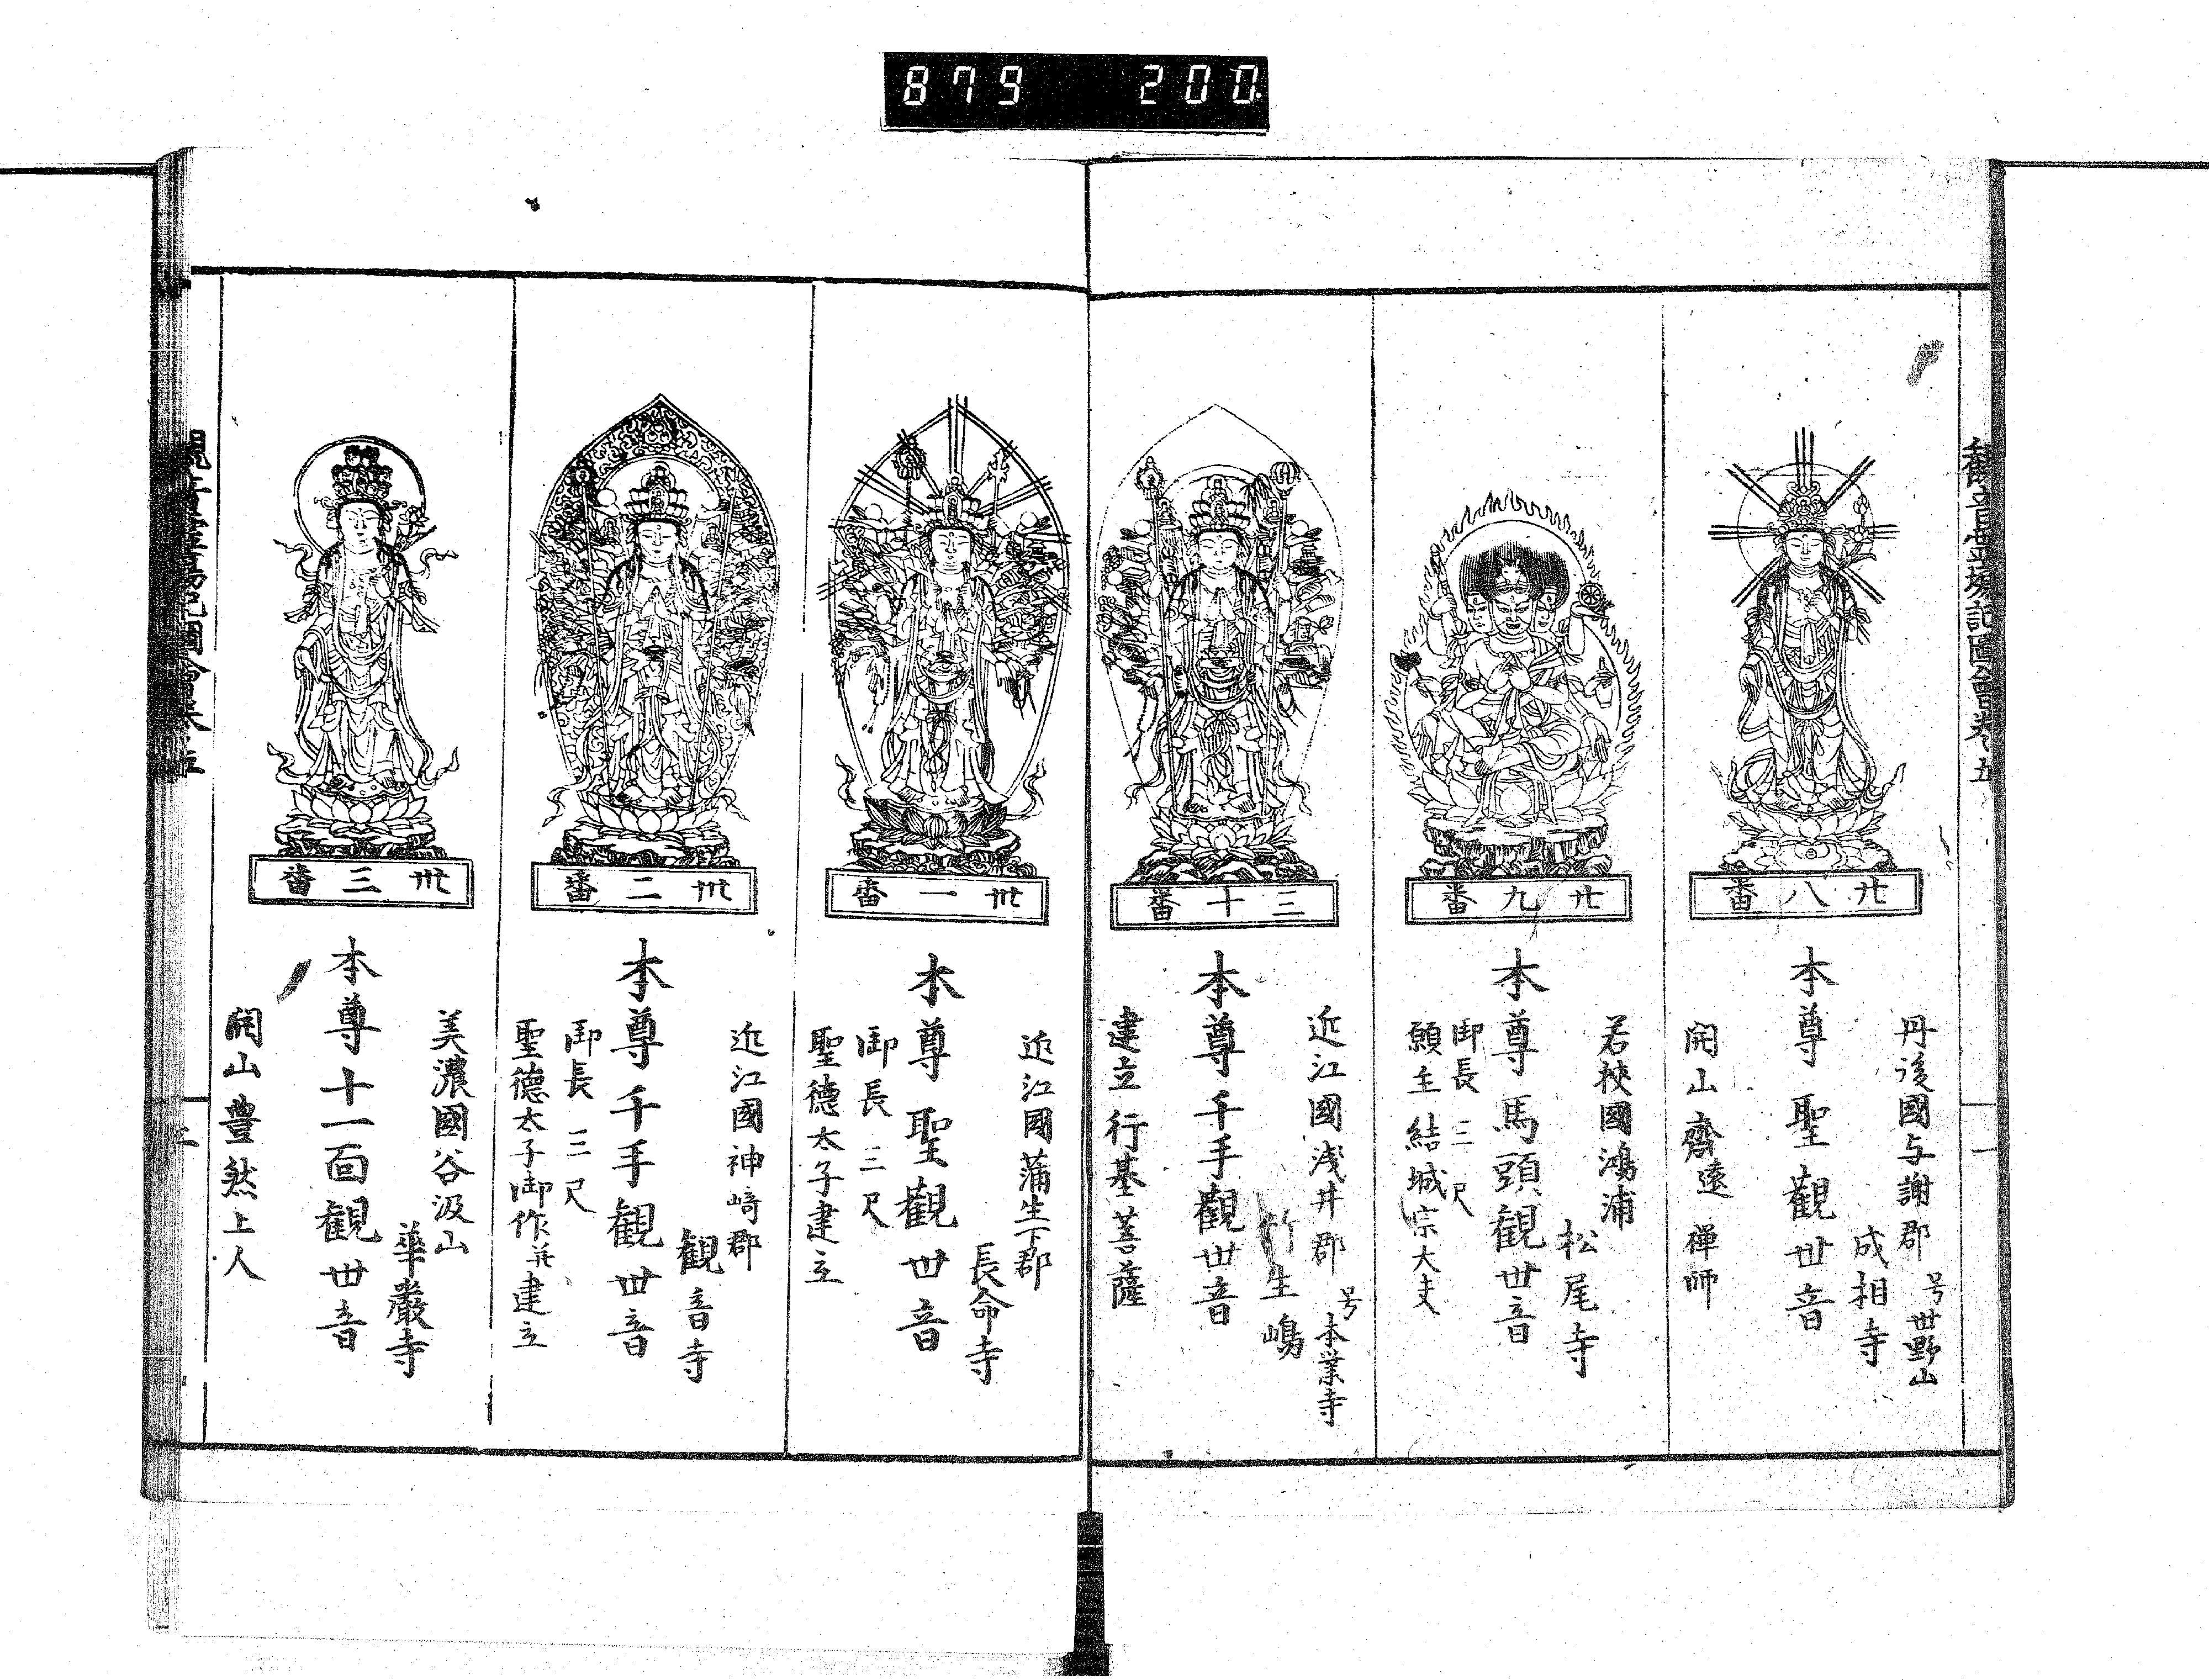 879 200
観音霊場記圖會巻五
一
廿八番
丹後國与謝郡
号世野山
成相寺
本尊聖觀世音
開山齋遠禅師
廿九番
若狹國鴻浦
松尾寺
本尊馬頭観世音
御長三尺
願主結城宗大夫
三十番
近江國浅井郡
号本業寺
竹生嶋
本尊千手觀世音
建立行基菩薩
卅一番
近江國蒲生下郡
長命寺
本尊聖觀世音
御長三尺
聖德太子建立
卅二番
近江國神﨑郡
観音寺
本尊千手観世音
御長三尺
聖德太子御作并建立
卅三番
美濃國谷汲山
華嚴寺
本尊十一面観世音
開山豊然上人